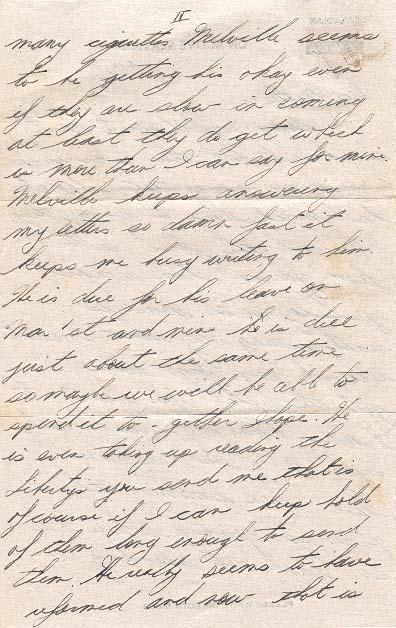 II
many cigarettes. Melville seems
to be getting his okay even
if they are slow in coming
at least they do get which
is more than I can say for mine.
Melville keeps answering
my letters so damn fast it
keeps me busy writing to him.
He is due for his leave on
Mar 1st and mine is due
just about the same time
so maybe we will be able to
spend it to-gether I hope. He
is even taking up reading the
Libertys you send me that is
of course if I can keep hold
of them long enough to send
them. He really seems to have
reformed and now that is